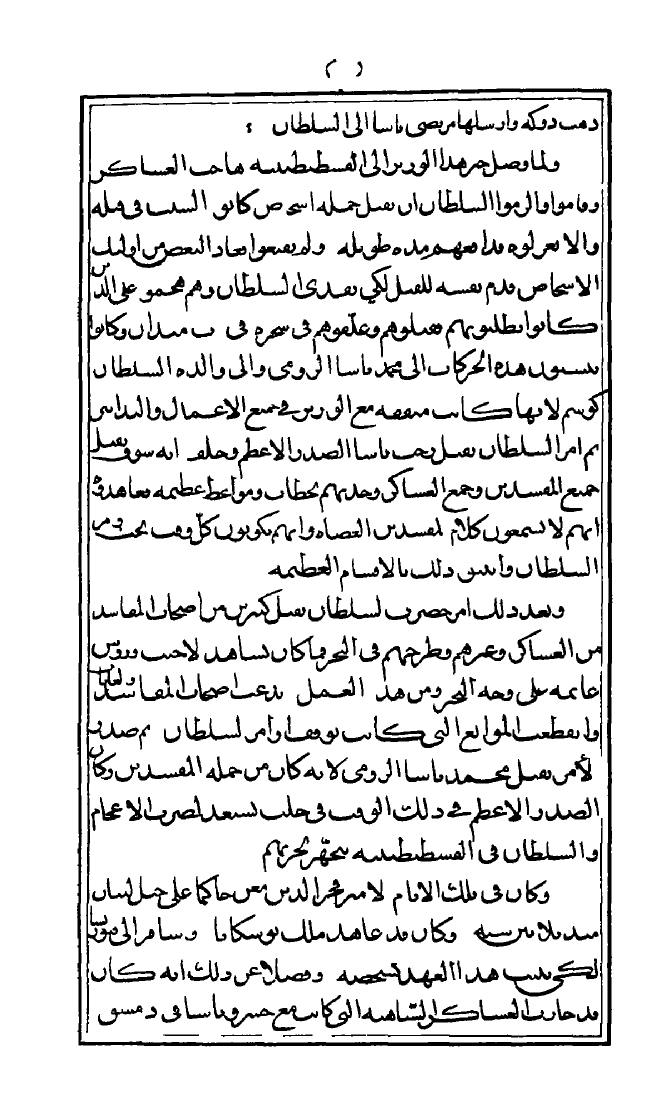 ( )
ذهب دوكه وارسلها مرتضى باشا الى السلطان :
ولما وصل خبر هذا الوزير الى القسطنطينيه هاجت العساكر
وقاموا والزموا السلطان ان يقتل جمله اشخاص كانوا السبب في قتله
والا يعزلوه فدافعهم مده طويله ولم يقنعوا بعاد البعض من اوليك
الاشخاص قدم نفسه للقتل لكي يفدي السلطان وهم هجموا على الذين
كانوا يطلبونهم فقتلوهم وعلقوهم في شجره في ميدان وكانوا
ينسبون هذه الحركات الى محمد باشا الرومي والى والده السلطان
كوسم لانها كانت متفقه مع الوزير في جميع الاعمال والتدابير
ثم امر السلطان بقتل رجب باشا الصدر الاعظم وحلف انه سوف يقتل
جميع المفسدين وجمع العساكر وحدثهم بخطاب ومواعظ عظيمه فعاهدوه
انهم لا يسمعون كلام المفسدين العصاه وانهم يكونون كل وقت تحت امر
السلطان واثبتوا ذلك بالاقسام العظيمه
وبعد ذلك امر حضرت السلطان بقتل كثيرين من اصحاب المفاسد
من العساكر وغيرهم وطرحهم في البحر فكان تشاهد لاجب وروس
عايمه على وجه البحر ومن هذا العمل ارتدعت اصحاب المفاسد
وانقطعت الموانع التي كانت توقف اوامر السلطان ثم صدر
الأمر بقتل محمد باشا الرومي لانه كان من جمله المفسدين وكان
الصدر الاعظم في ذلك الوقت في حلب يستعد لضرب الاعجام
والسلطان في القسطنطينيه يتجهّز لحربهم
وكان في تلك الايام الامير فخر الدين معن حاكما على جبل لبنان
منذ ثلاثين سنه وكان قد عاهد ملك توسكانا وسافر الى
لكي يثبت هذا العهد بشخصه وفضلا عن ذلك انه كان
قد حارب العساكر الشاهيه التي كانت مع خسرو باشا في دمشق